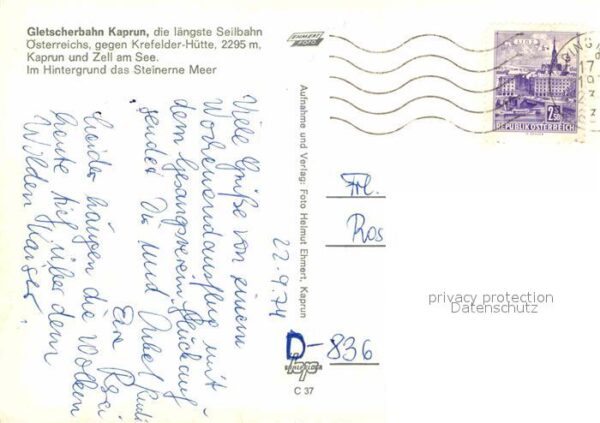 Gletscherbahn Kaprun, die längste Seilbahn
Österreichs, gegen Krefelder-Hütte, 2295 m,
Kaprun und Zell am See.
Im Hintergrund das Steinerne Meer
EHMERT
FOTO
LINZ
2.50
REPUBLIK ÖSTERREICH
17
Aufnahme und Verlag: Foto Helmut Ehmert, Kaprun
22.9.74
Viele Grüße von einem
Wochenendausflug mit
dem Gesangsverein Glückauf
sendet Dir und Onkel Rudi
Eure
Leider hängen die Wolken
heute tief über dem
Wilden Kaiser.
Frl.
Ros
privacy protection
Datenschutz
D-836
C 37